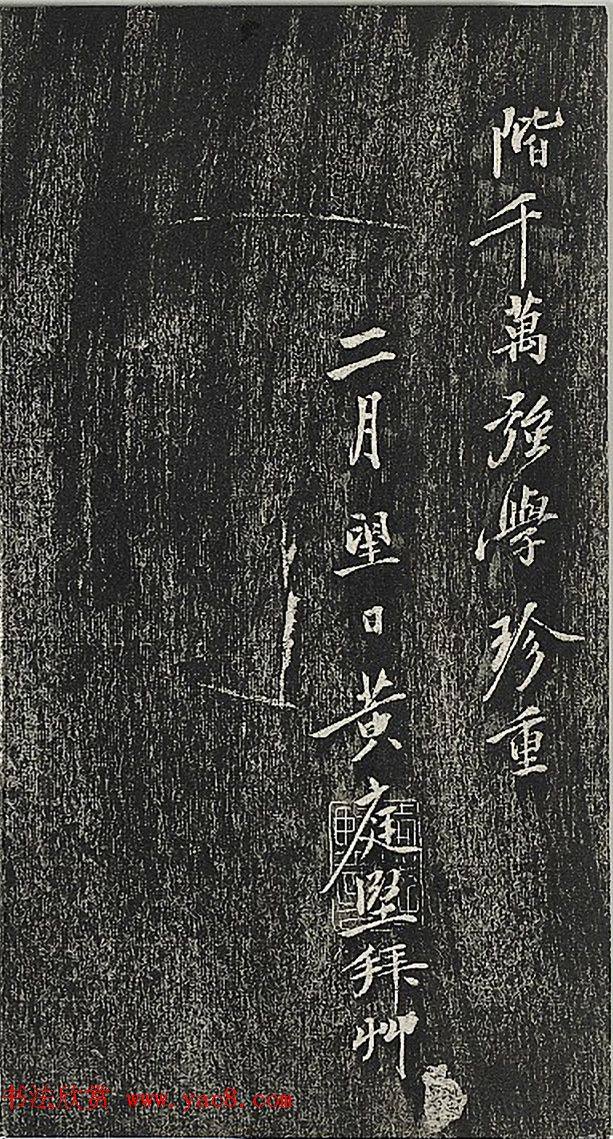 階千萬强學珍重
二月望日黃庭堅拜艸
书法欣赏 www.yac8.com